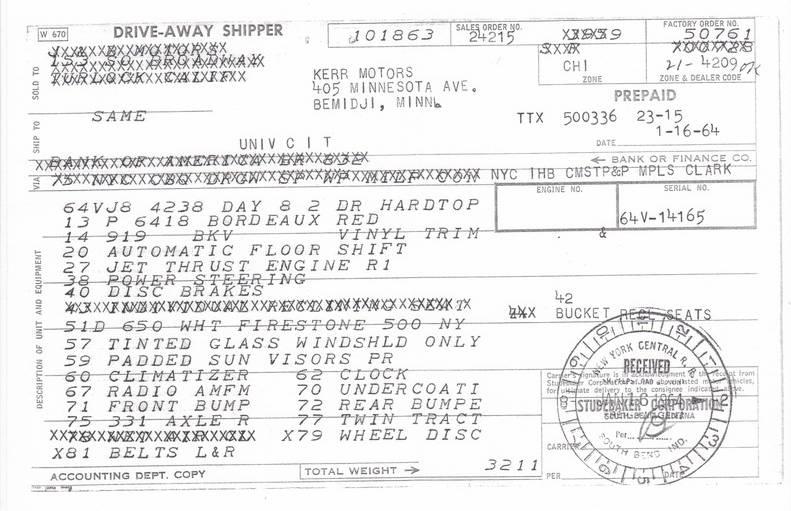 W 670 DRIVE-AWAY SHIPPER 101863 SALES ORDER NO. 24215 FACTORY ORDER NO. 50761
SOLD TO J & B MOTORS
153 SO BROADWAY
TURLOCK CALIF
700728
CHI
ZONE
21-4209 OK
ZONE & DEALER CODE
KERR MOTORS
405 MINNESOTA AVE.
BEMIDJI, MINN.
PREPAID
SHIP TO SAME
TTX 500336 23-15
DATE 1-16-64
UNIV C I T
BANK OF AMERICA BR 832
← BANK OR FINANCE CO.
VIA 75 NYC CBQ DRGW SP WP MTLP CON NYC IHB CMSTP&P MPLS CLARK
ENGINE NO. SERIAL NO.
64V-14165
DESCRIPTION OF UNIT AND EQUIPMENT
64VJ8 4238 DAY 8 2 DR HARDTOP
13 P 6418 BORDEAUX RED
14 919 BKV VINYL TRIM &
20 AUTOMATIC FLOOR SHIFT
27 JET THRUST ENGINE R1
38 POWER STEERING
40 DISC BRAKES
43 INDIVIDUAL RECLINING SEAT 42
BUCKET RECL SEATS
51D 650 WHT FIRESTONE 500 NY
57 TINTED GLASS WINDSHLD ONLY
59 PADDED SUN VISORS PR
60 CLIMATIZER 62 CLOCK
67 RADIO AMFM 70 UNDERCOATI
71 FRONT BUMP 72 REAR BUMPE
75 331 AXLE R 77 TWIN TRACT
X79 WHEEL DISC
X81 BELTS L&R
NEW YORK CENTRAL R.R.
RECEIVED
STUDEBAKER CORPORATION
SOUTH BEND INDIANA
Per
SOUTH BEND, IND.
Carrier's signature is an acknowledgment of the receipt from
Studebaker Corporation of above listed motor vehicles,
for ultimate delivery to the consignee indicated above.
CARRIER
PER DATE
ACCOUNTING DEPT. COPY TOTAL WEIGHT → 3211